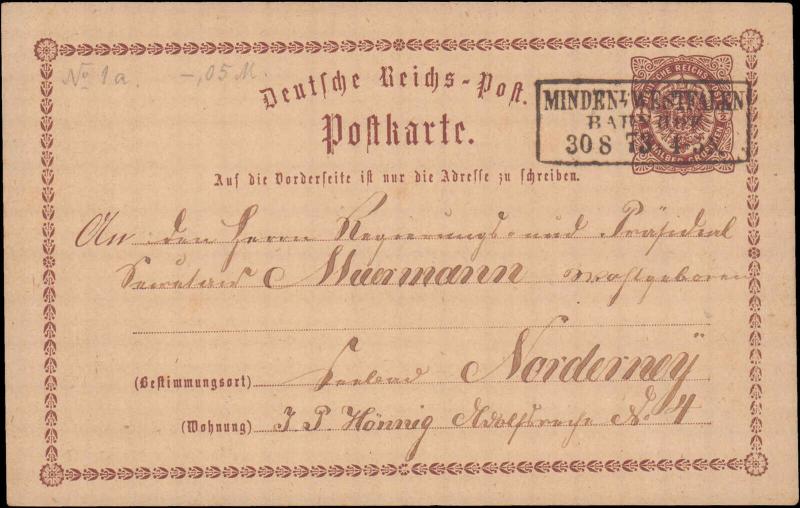 No 1a -,05 M.
Deutsche Reichs-Post.
Postkarte.
MINDEN-WESTFALEN
BAHNHOF
30 8 73 4-5N.
Auf die Vorderseite ist nur die Adresse zu schreiben.
An den Herrn Regierungs- und Präsidial
Secretair Muermann Wohlgeboren
(Bestimmungsort) Seebad Norderneÿ
(Wohnung) J. P. Hönnig No. 4